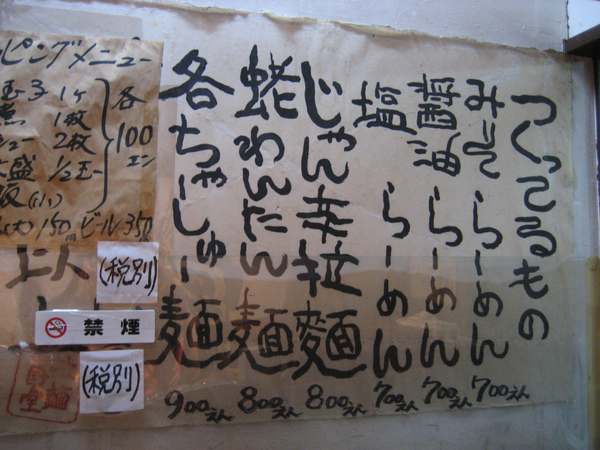 つくってるもの
みそらーめん 700えん
醤油らーめん 700えん
塩らーめん 700えん
じゃん辛拉麺 800えん
蛯わんたん麺 800えん
各ちゃーしゅー麺 900えん
ピングメニュー
玉子 1ケ
1枚
ュー 2枚
盛 1/2玉
飯(小)
各100エン
(大)150 ビール350
(税別)
禁煙
(税別)